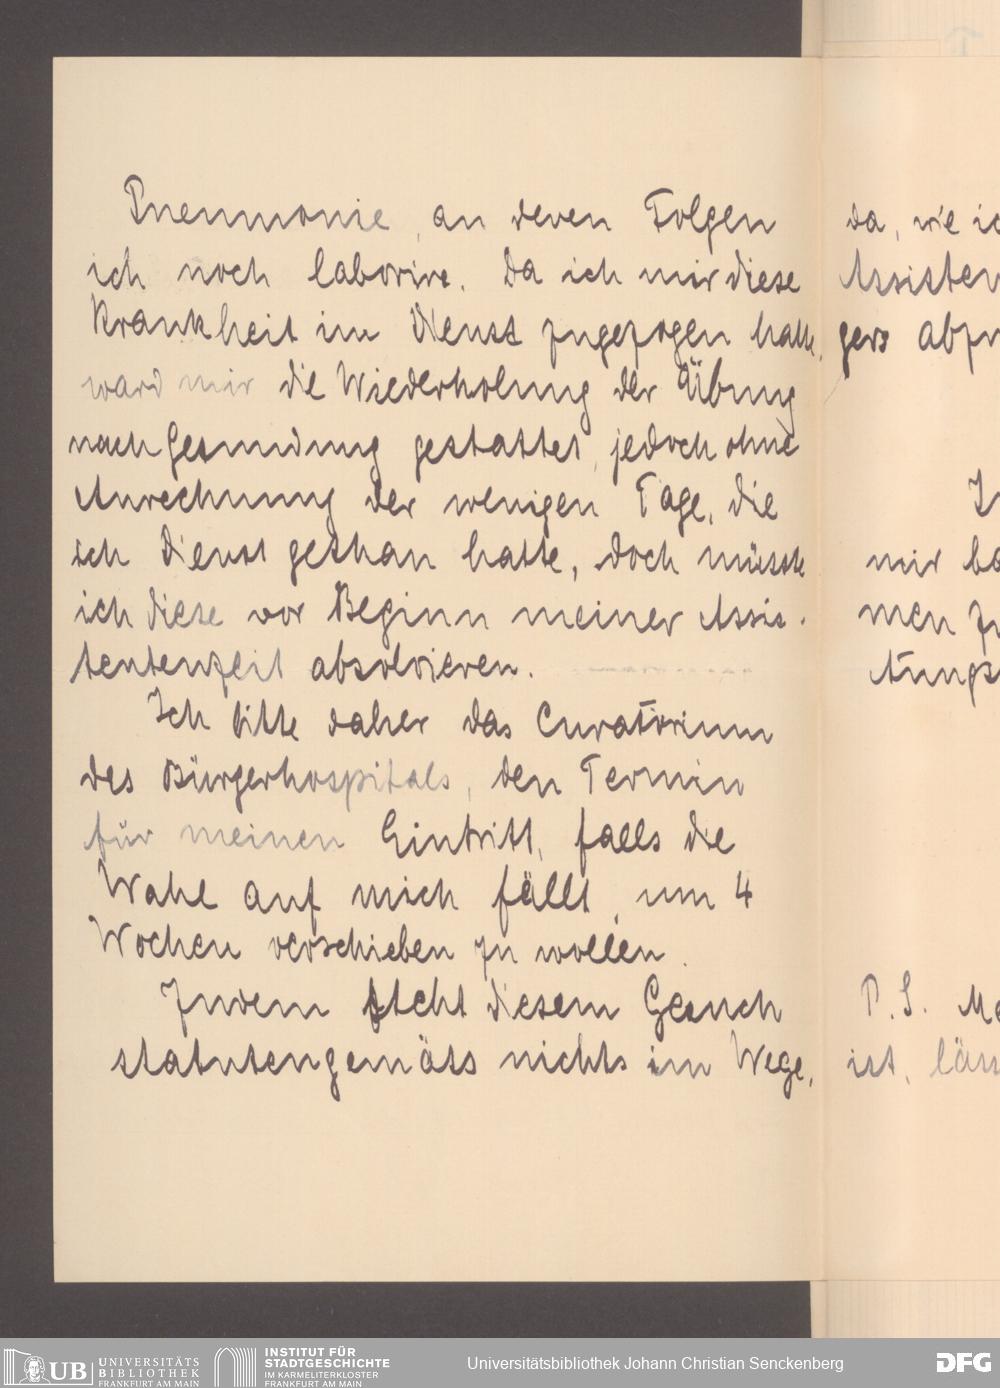 Pneumonie, an deren Folgen
ich noch laborire. Da ich mir diese
Krankheit im Dienst zugezogen hatte,
ward mir die Wiederholung der Übung
nach Gesundung gestattet, jedoch ohne
Anrechnung der wenigen Tage, die
ich Dienst gethan hatte, doch müsste
ich diese vor Beginn meiner Assis-
tentenzeit absolvieren.
Ich bitte daher das Curatorium
des Bürgerhospitals, den Termin
für meinen Eintritt, falls die
Wahl auf mich fällt, um 4
Wochen verschieben zu wollen.
Zudem steht diesem Gesuch
statutengemäss nichts im Wege,
da, wie ic
Assisten
gers abzu
mir ba
men zu
P. S.
ist, läss
UB UNIVERSITÄTS BIBLIOTHEK FRANKFURT AM MAIN
INSTITUT FÜR STADTGESCHICHTE IM KARMELITERKLOSTER FRANKFURT AM MAIN
Universitätsbibliothek Johann Christian Senckenberg
DFG